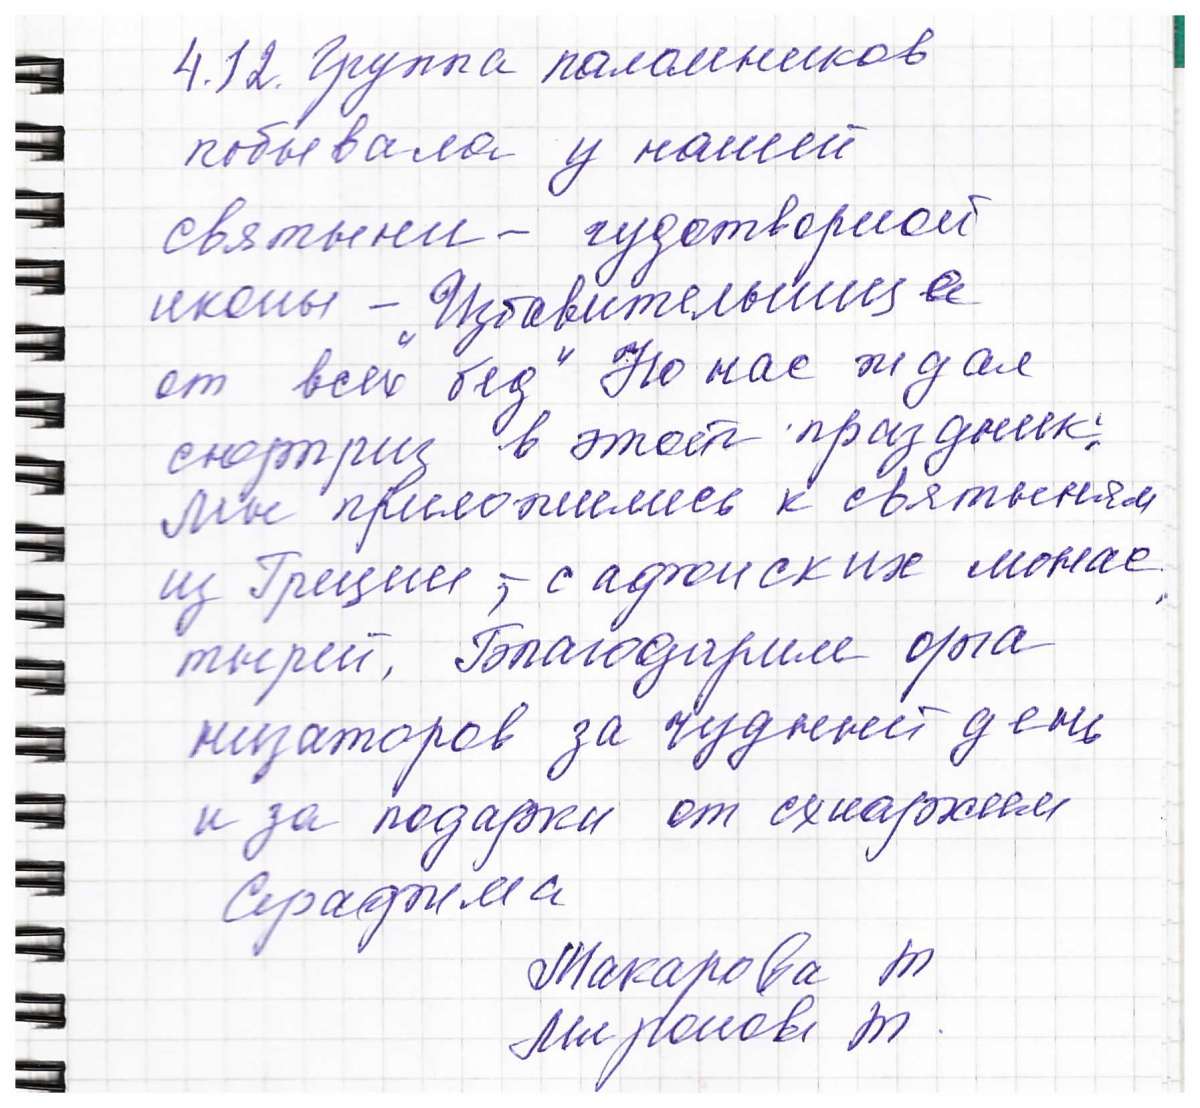 4.12. Группа паломников
побывала у нашей
святыни – чудотворной
иконы – "Избавительница
от всех бед" Но нас ждал
сюрприз в этот праздник:
Мы приложились к святыням
из Греции, – с афонских монас
тырей, Благодарим орга
низаторов за чудный день
и за подарки от
Серафима
Макарова Т
Миронова Т.